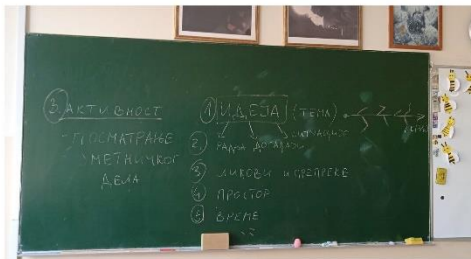 3. АКТИВНОСТ
ПОСМАТРАЊЕ
УМЕТНИЧКОГ
ДЕЛА
1 ИДЕЈА (ТЕМА)
СИТУАЦИЈЕ
2. РАДЊА ДОГАЂАЈИ
3 ЛИКОВИ И ПРЕПРЕКЕ
4 ПРОСТОР
5 ВРЕМЕ